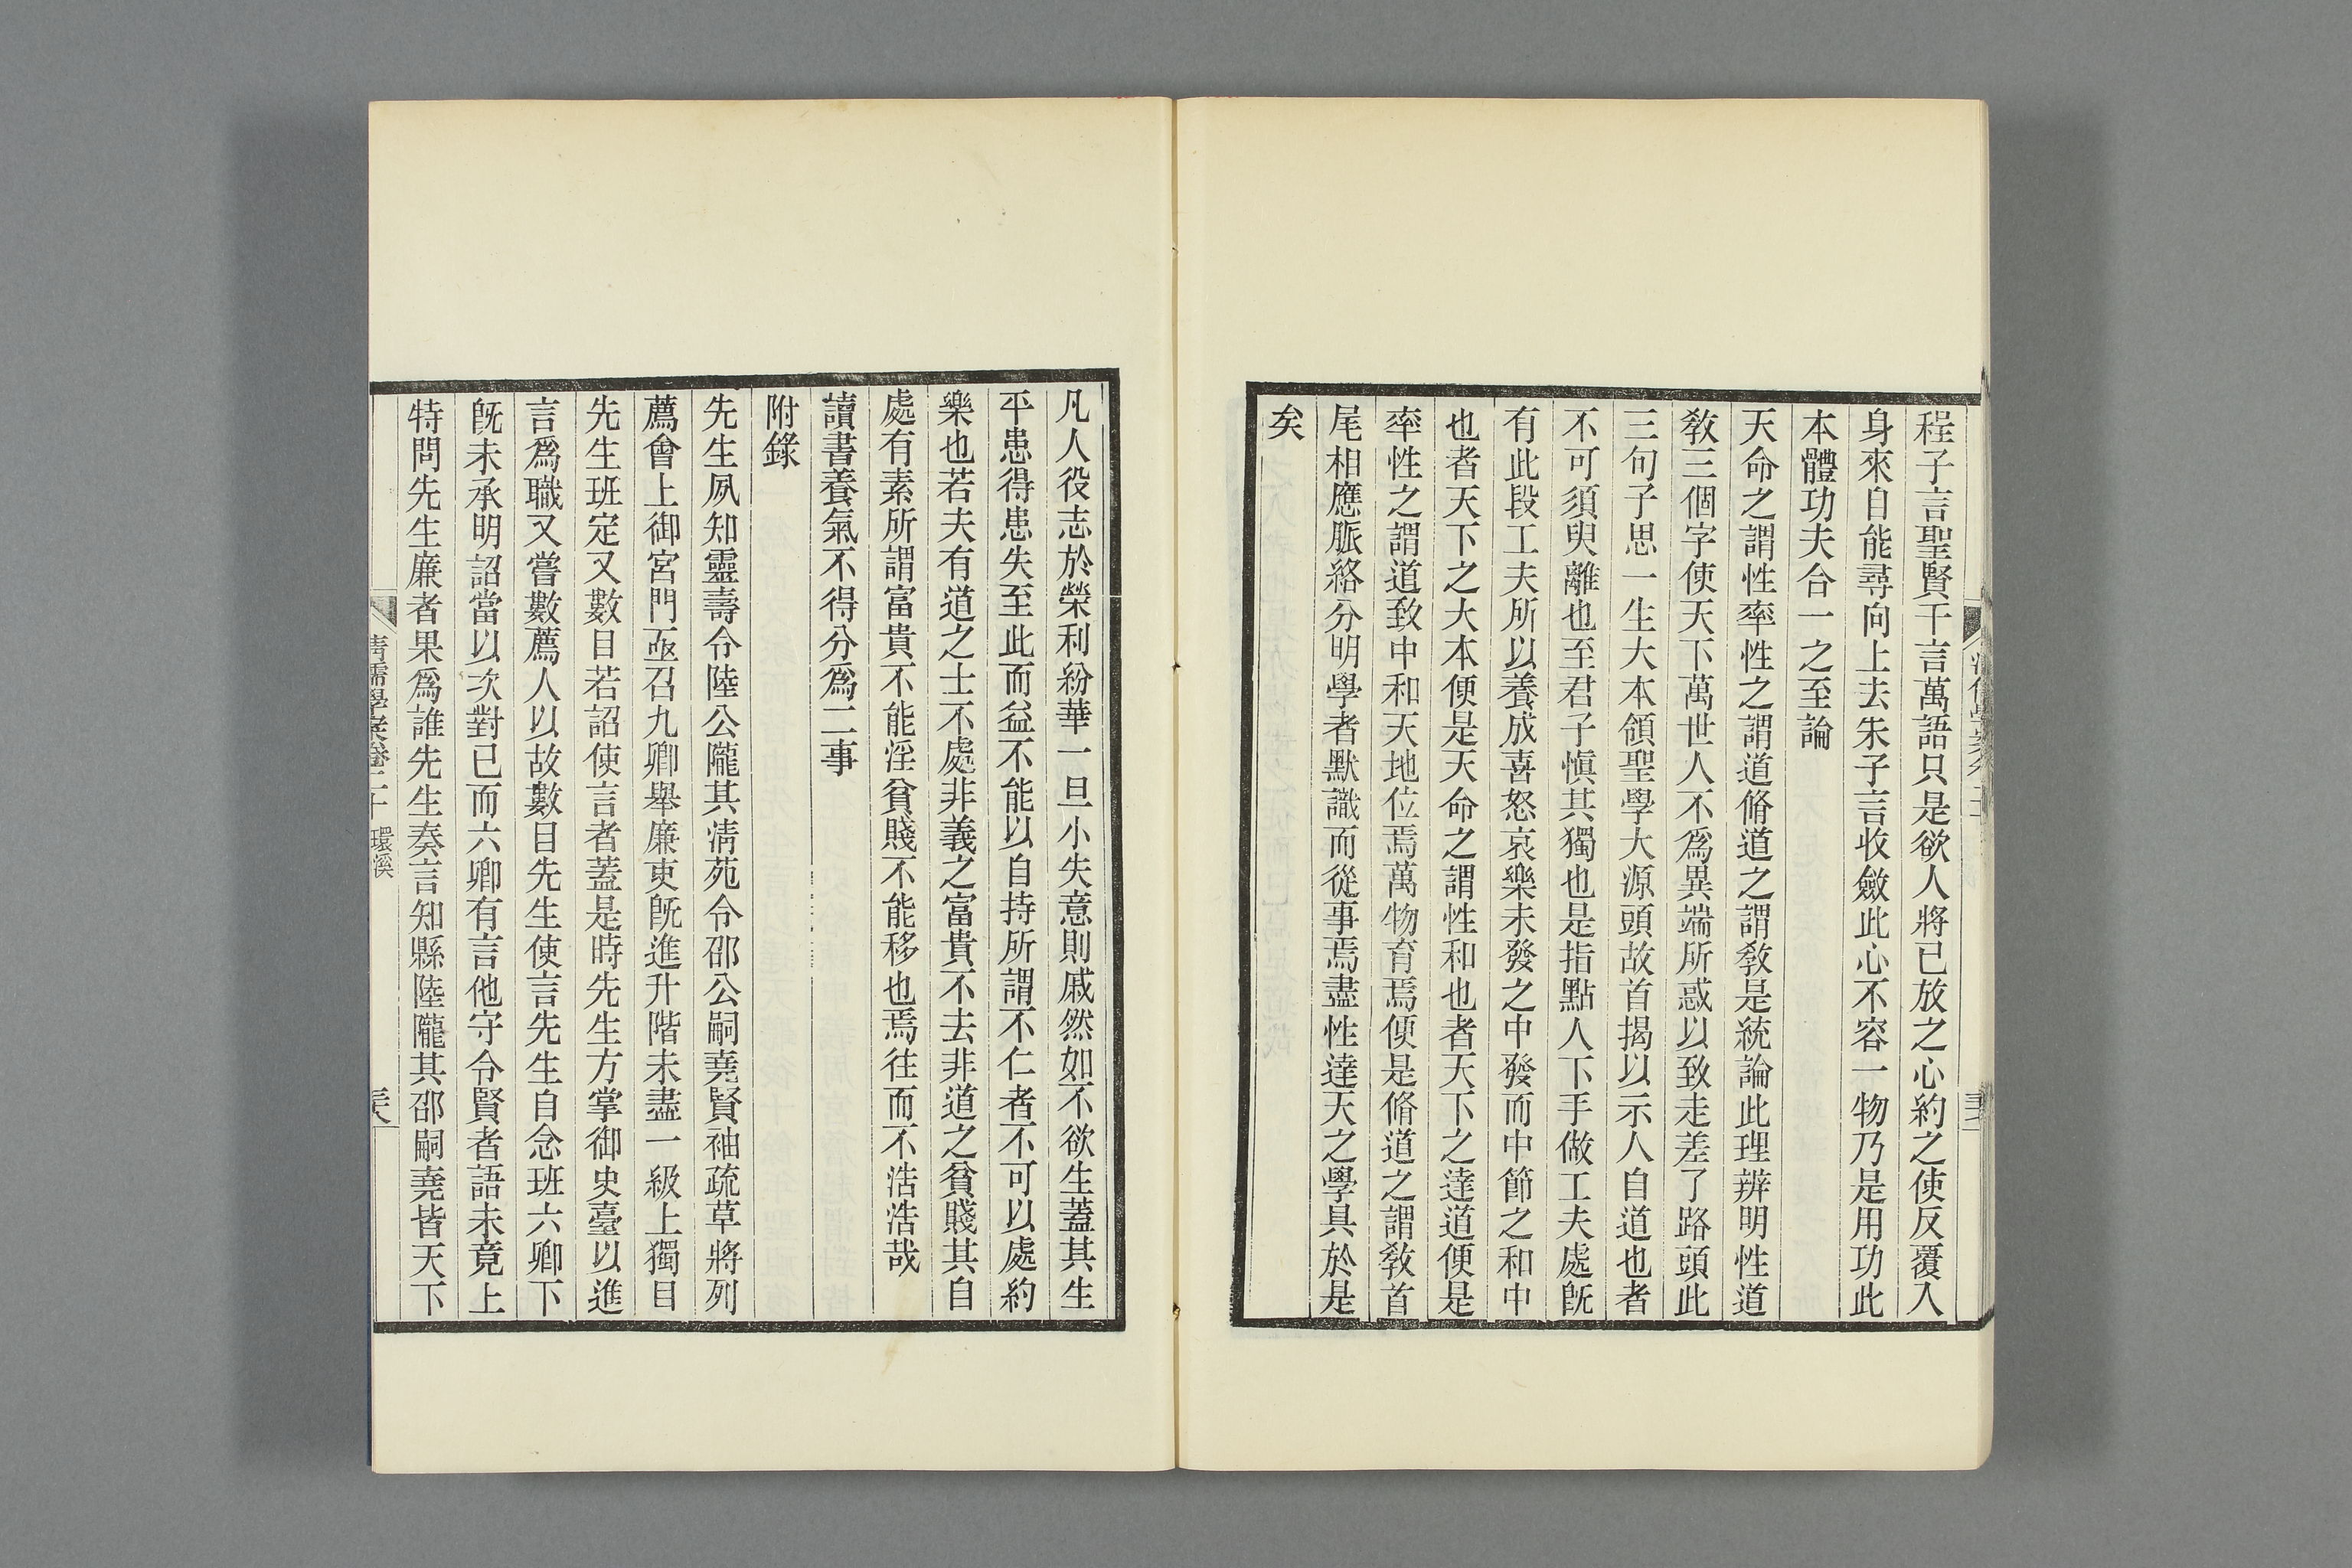 程子言聖賢千言萬語只是欲人將已放之心約之使反覆入
身來自能尋向上去朱子言收斂此心不容一物乃是用功此
本體功夫合一之至論
天命之謂性率性之謂道脩道之謂敎是統論此理辨明性道
敎三個字使天下萬世人不爲異端所惑以致走差了路頭此
三句子思一生大本領聖學大源頭故首揭以示人自道也者
不可須臾離也至君子愼其獨也是指點人下手做工夫處旣
有此段工夫所以養成喜怒哀樂未發之中發而中節之和中
也者天下之大本便是天命之謂性和也者天下之達道便是
率性之謂道致中和天地位焉萬物育焉便是脩道之謂敎首
尾相應脈絡分明學者默識而從事焉盡性達天之學具於是
矣
凡人役志於榮利紛華一旦小失意則戚然如不欲生蓋其生
平患得患失至此而益不能以自持所謂不仁者不可以處約
樂也若夫有道之士不處非義之富貴不去非道之貧賤其自
處有素所謂富貴不能淫貧賤不能移也焉往而不浩浩哉
讀書養氣不得分爲二事
附錄
先生夙知靈壽令陸公隴其淸苑令邵公嗣堯賢袖疏草將列
薦會上御宮門亟召九卿舉廉吏旣進升階未盡一級上獨目
先生班定又數目若詔使言者蓋是時先生方掌御史臺以進
言爲職又嘗數薦人以故數目先生使言先生自念班六卿下
旣未承明詔當以次對已而六卿有言他守令賢者語未竟上
特問先生廉者果爲誰先生奏言知縣陸隴其邵嗣堯皆天下
淸儒學案卷二十 環溪